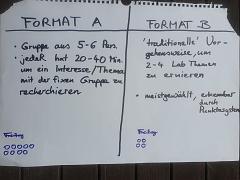 FORMAT A
• Gruppe aus 5-6 Pers.
• jedeR hat 20-40 Min.
um ein Interesse/Thema
mit der fixen Gruppe zu
recherchieren
Freitag
FORMAT B
'traditionelle' Vor-
gehensweise, um
2-4 Lab Themen
zu eruieren
• meistgewählt, erkennbar
durch
Punktesystem
Freitag